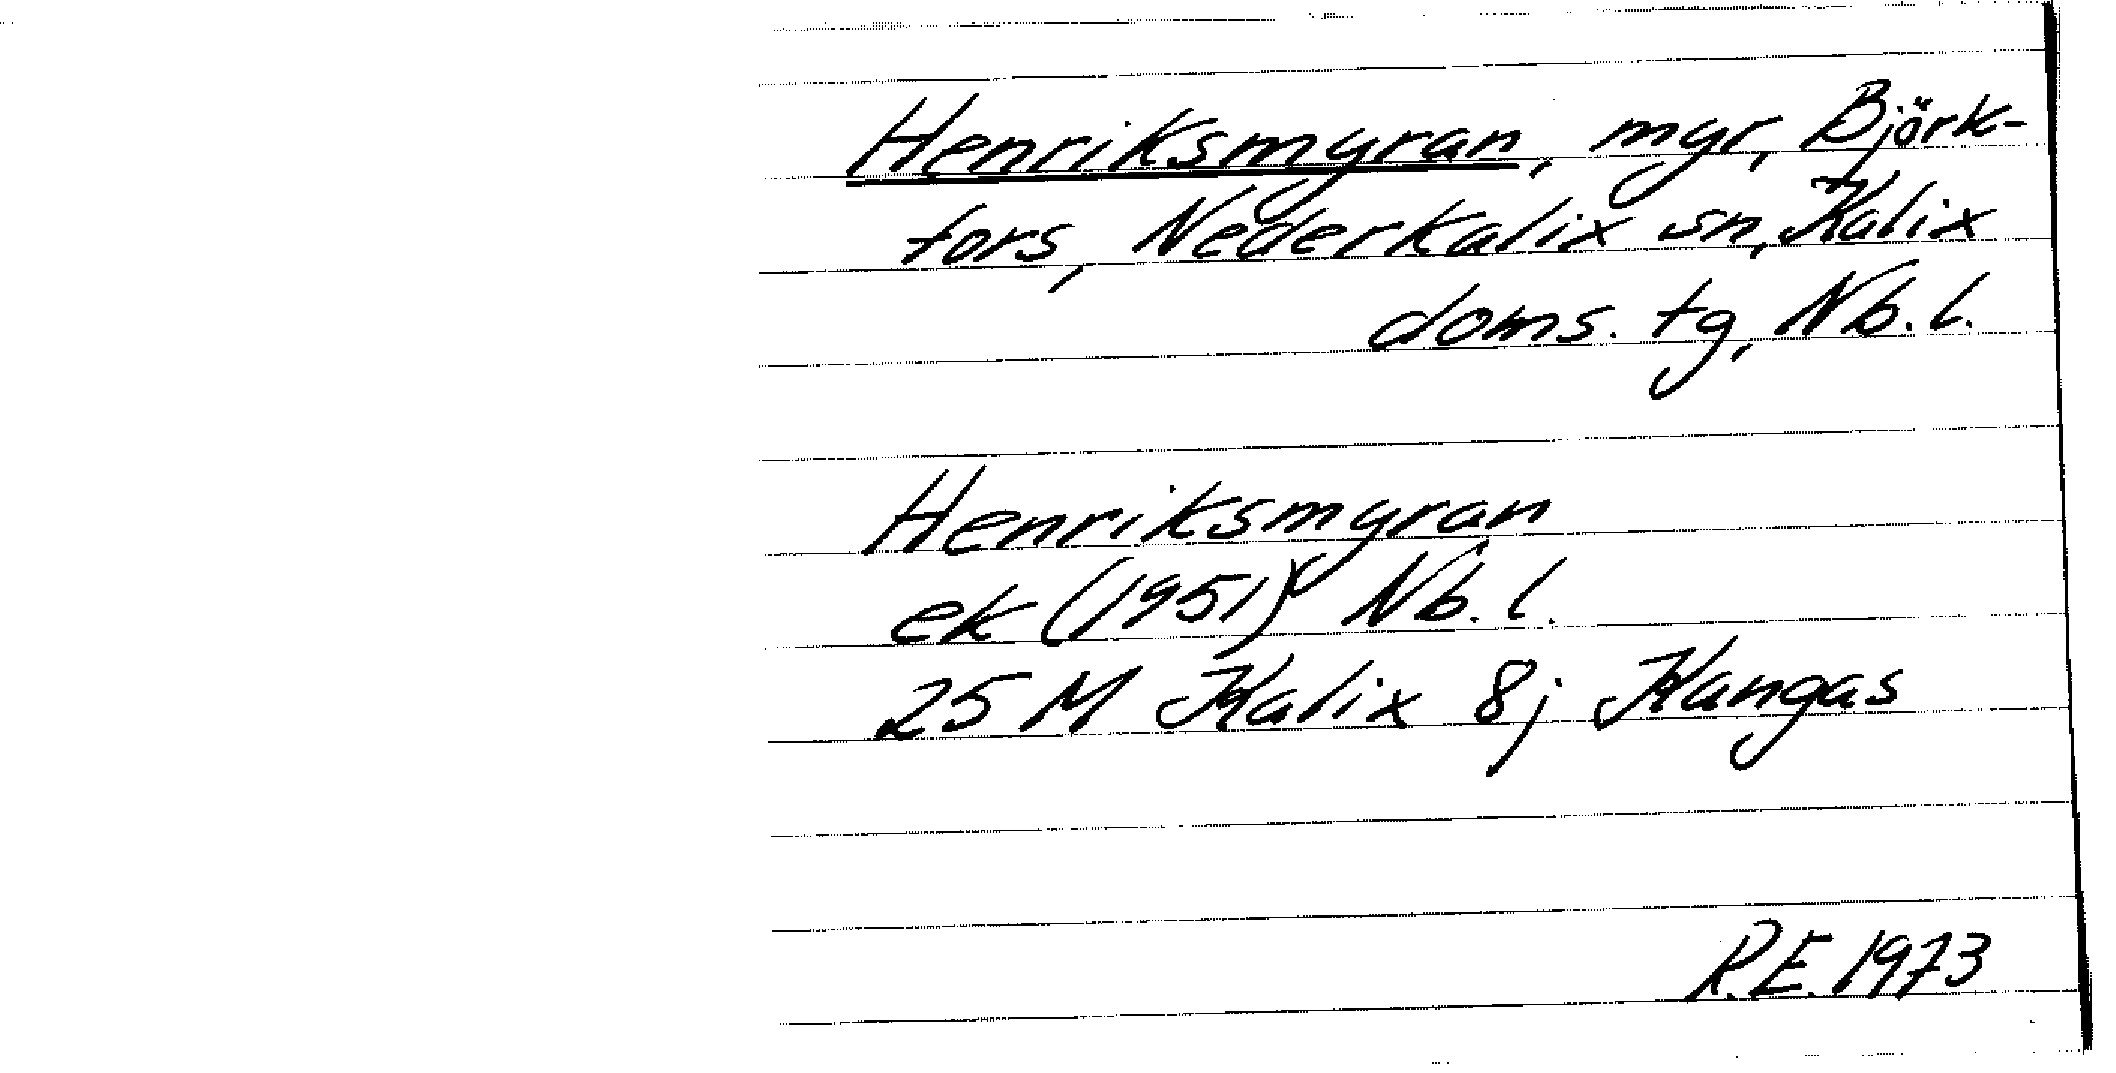 Henriksmyran, myr, Björk-
fors, Nederkalix sn, Kalix
doms. tg, Nb. l.
Henriksmyran
ek (1951) Nb. l.
25 M Kalix 8j Kangas
R.E. 1973